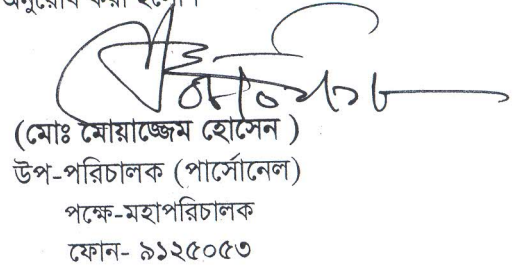 অনুরোধ করা হলো।
(মোঃ মোয়াজ্জেম হোসেন )
উপ-পরিচালক (পার্সোনেল)
পক্ষে-মহাপরিচালক
ফোন- ৯১২৫০৫৩